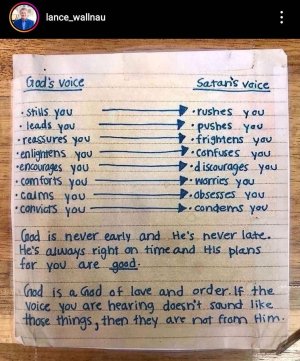 lance_wallnau
God's voice Satan's voice
• stills you • rushes you
• leads you • pushes you
• reassures you • frightens you
• enlightens you • confuses you
• encourages you • discourages you
• comforts you • worries you
• calms you • obsesses you
• convicts you • condemns you
God is never early and He's never late.
He's always right on time and His plans
for you are good.
God is a God of love and order. If the
voice you are hearing doesn't sound like
those things, then they are not from Him.